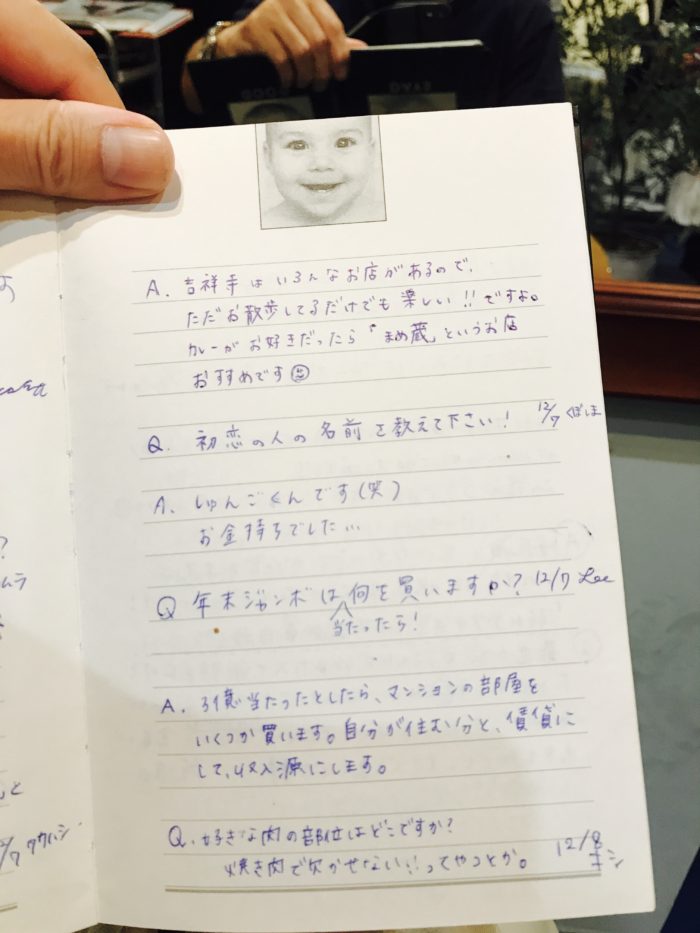 A. 吉祥寺はいろんなお店があるので、
ただお散歩してるだけでも楽しい!!ですよ。
カレーがお好きだったら「まめ蔵」というお店
おすすめです
Q. 初恋の人の名前を教えて下さい! 12/7 くぼしま
A. しゅんごくんです(笑)
お金持ちでした…
Q 年末ジャンボは何を買いますか? 12/7 Lee
当たったら!
A. 3億当たったとしたら、マンションの部屋を
いくつか買います。自分が住む分と、賃貸に
して、収入源にします。
Q. 好きな肉の部位はどこですか?
焼き肉で欠かせない!!ってやつとか。
12/8
キシ